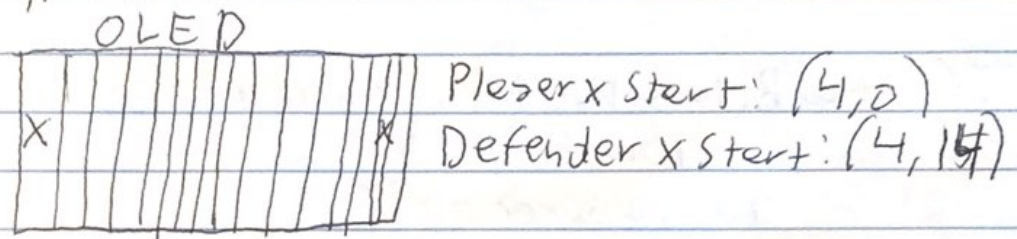 OLED
Plezer x Start: (4,0)
X X
Defender x Start: (4,14)